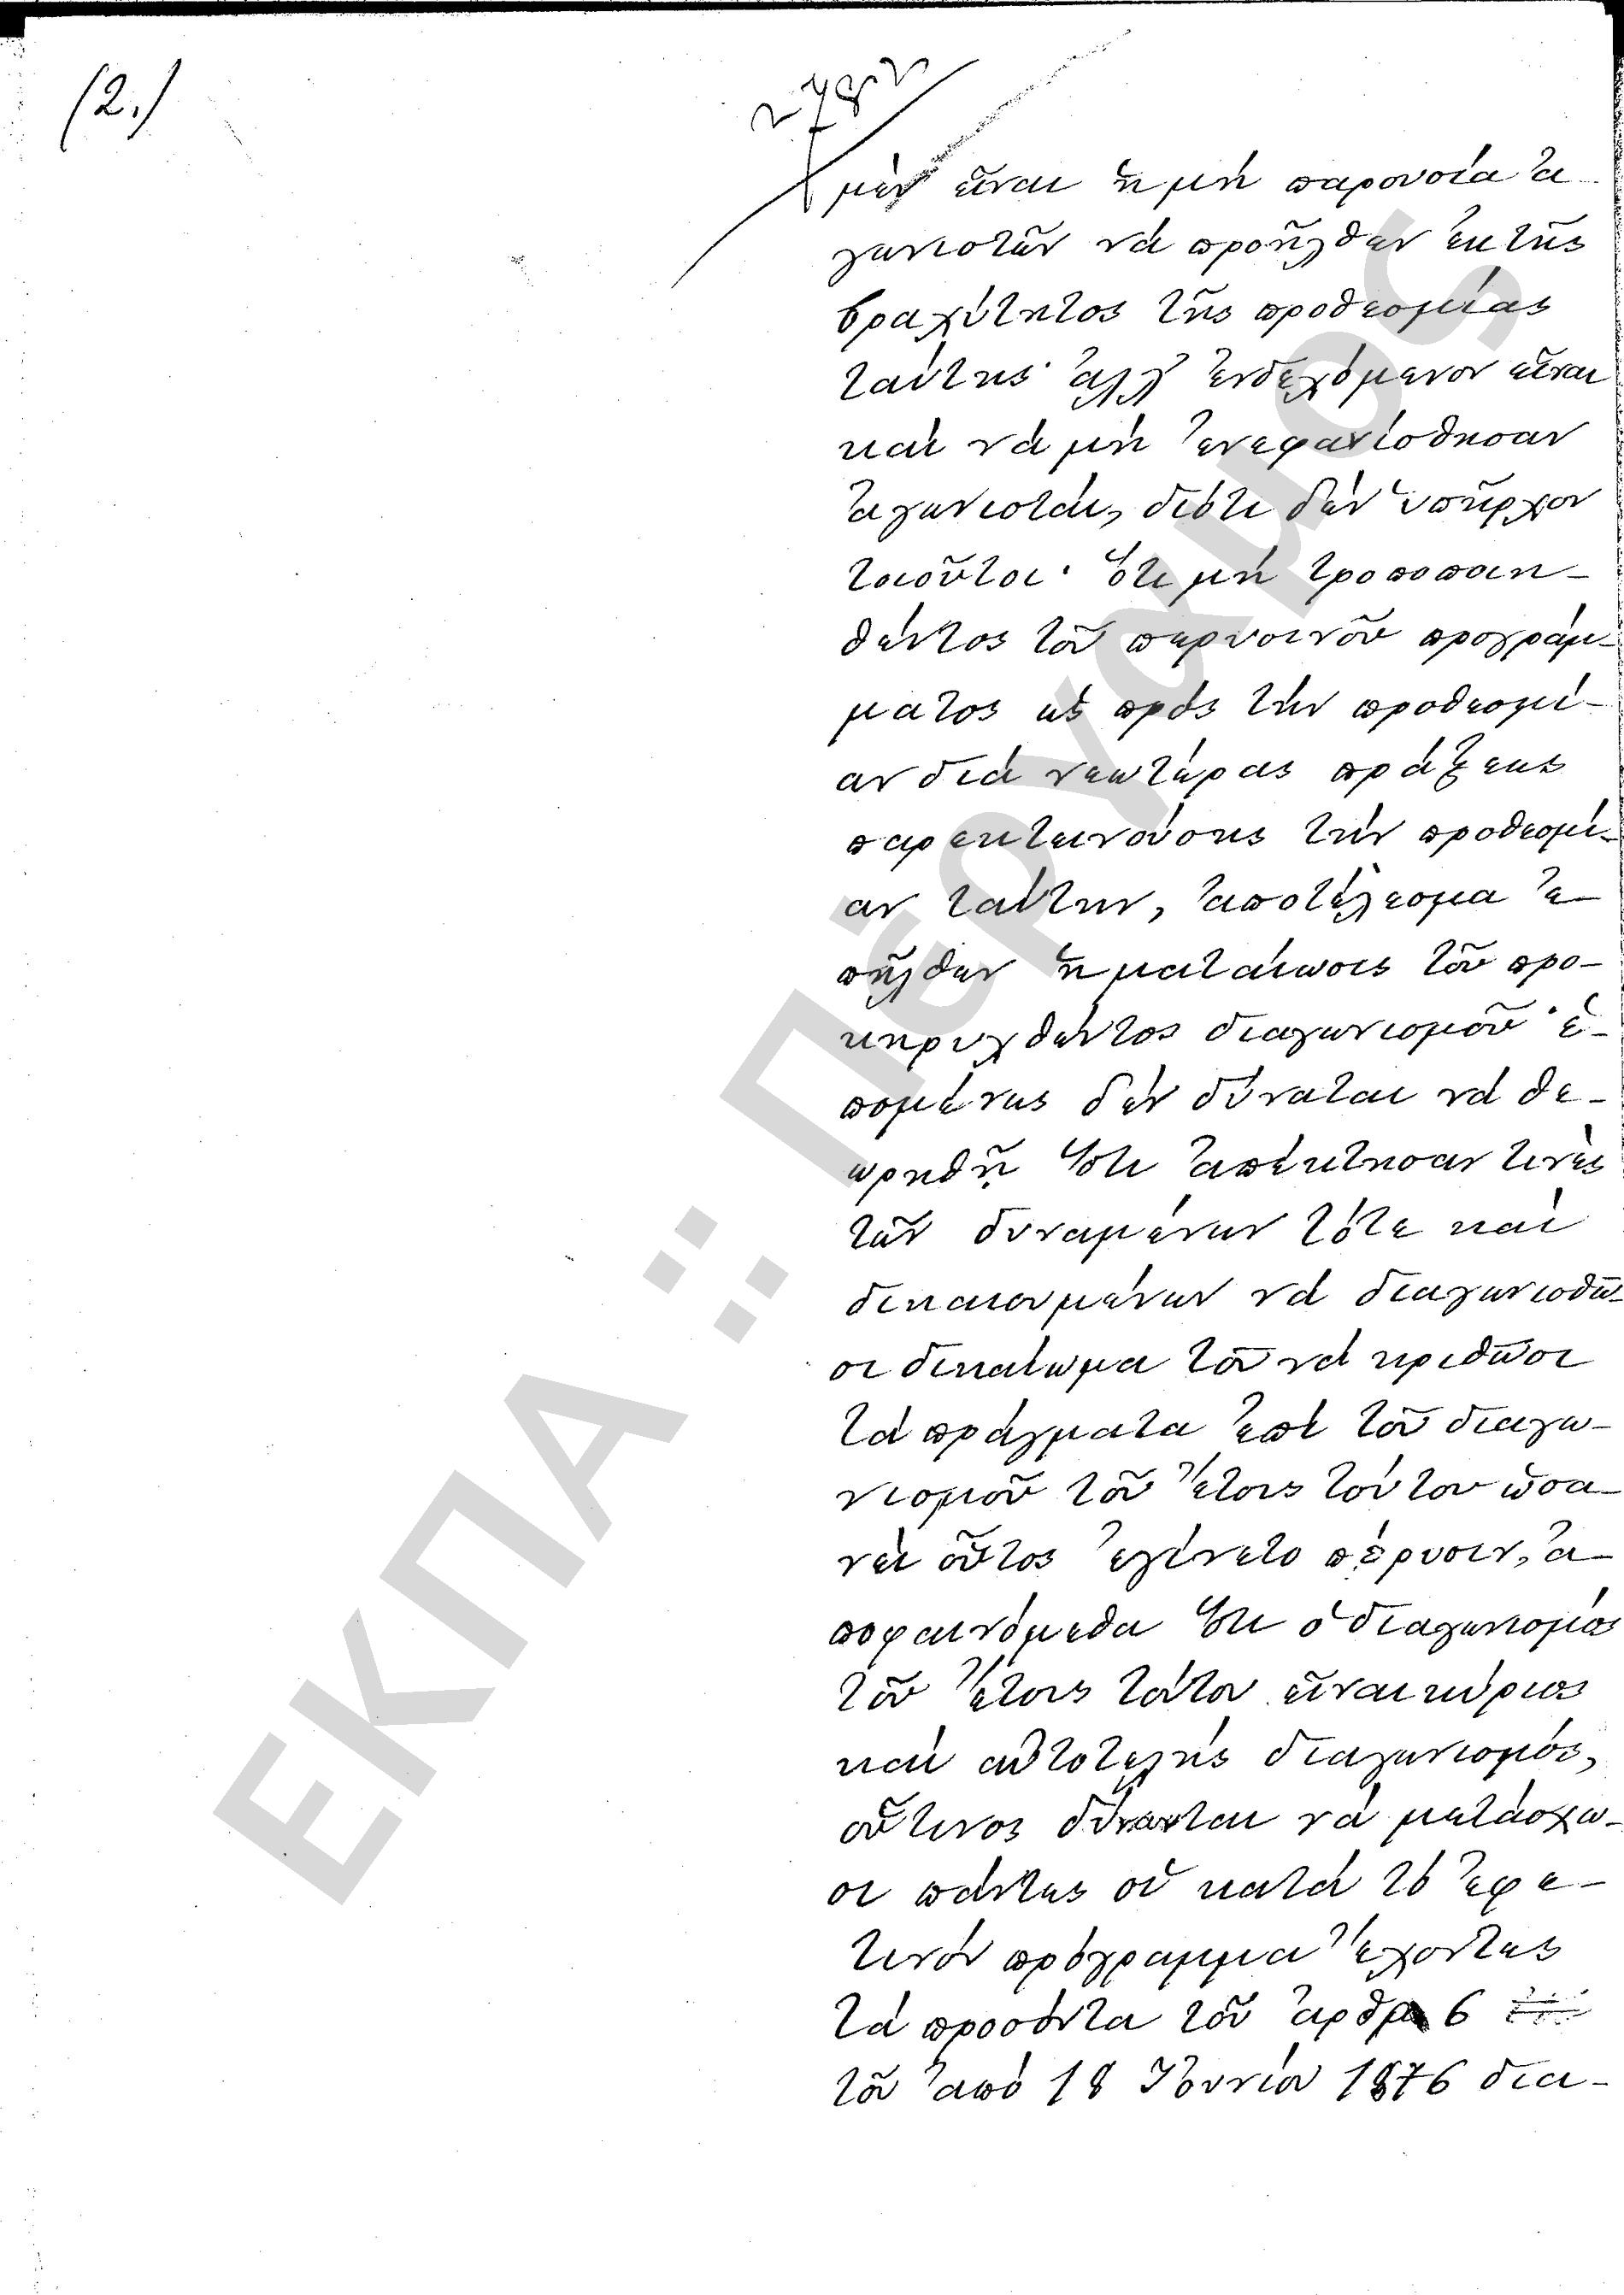 (2.)
2782
μὲν εἶναι ἡ μὴ παρουσία ἀ-
γωνιστῶν νὰ προῆλθεν ἐκ τῆς
βραχύτητος τῆς προθεσμίας
ταύτης· ἀλλ' ἐνδεχόμενον εἶναι
καὶ νὰ μὴ ἐνεφανίσθησαν
ἀγωνισταί, διότι δὲν ὑπῆρχον
τοιοῦτοι· ὅτι μὴ τροποποιη-
θέντος τοῦ περυσινοῦ προγράμ-
ματος ὡς πρὸς τὴν προθεσμί-
αν διὰ νεωτέρας πράξεως
παρεκτεινούσης τὴν προθεσμί-
αν ταύτην, ἀποτέλεσμα ἐ-
πῆλθεν ἡ ματαίωσις τοῦ προ-
κηρυχθέντος διαγωνισμοῦ· ἑ-
πομένως δὲν δύναται νὰ θε-
ωρηθῇ ὅτι ἀπέκτησαν τινὲς
τῶν δυναμένων τότε καὶ
δικαιουμένων νὰ διαγωνισθῶ-
σι δικαίωμα τοῦ νὰ κριθῶσι
τὰ πράγματα ἐπὶ τοῦ διαγω-
νισμοῦ τοῦ ἔτους τούτου ὡσα-
νεὶ οὗτος ἐγίνετο πέρυσιν, ἀ-
ποφαινόμεθα ὅτι ὁ διαγωνισμὸς
τοῦ ἔτους τούτου εἶναι κύριος
καὶ αὐτοτελὴς διαγωνισμός,
οὗτινος δύνανται νὰ μετάσχω-
σι πάντες οἱ κατὰ τὸ ἐφε-
τινὸν πρόγραμμα ἔχοντες
τὰ προσόντα τοῦ ἄρθρ 6
τοῦ ἀπὸ 18 Ἰουνίου 1876 δια-
ΕΚΠΑ :: Πέργαμος